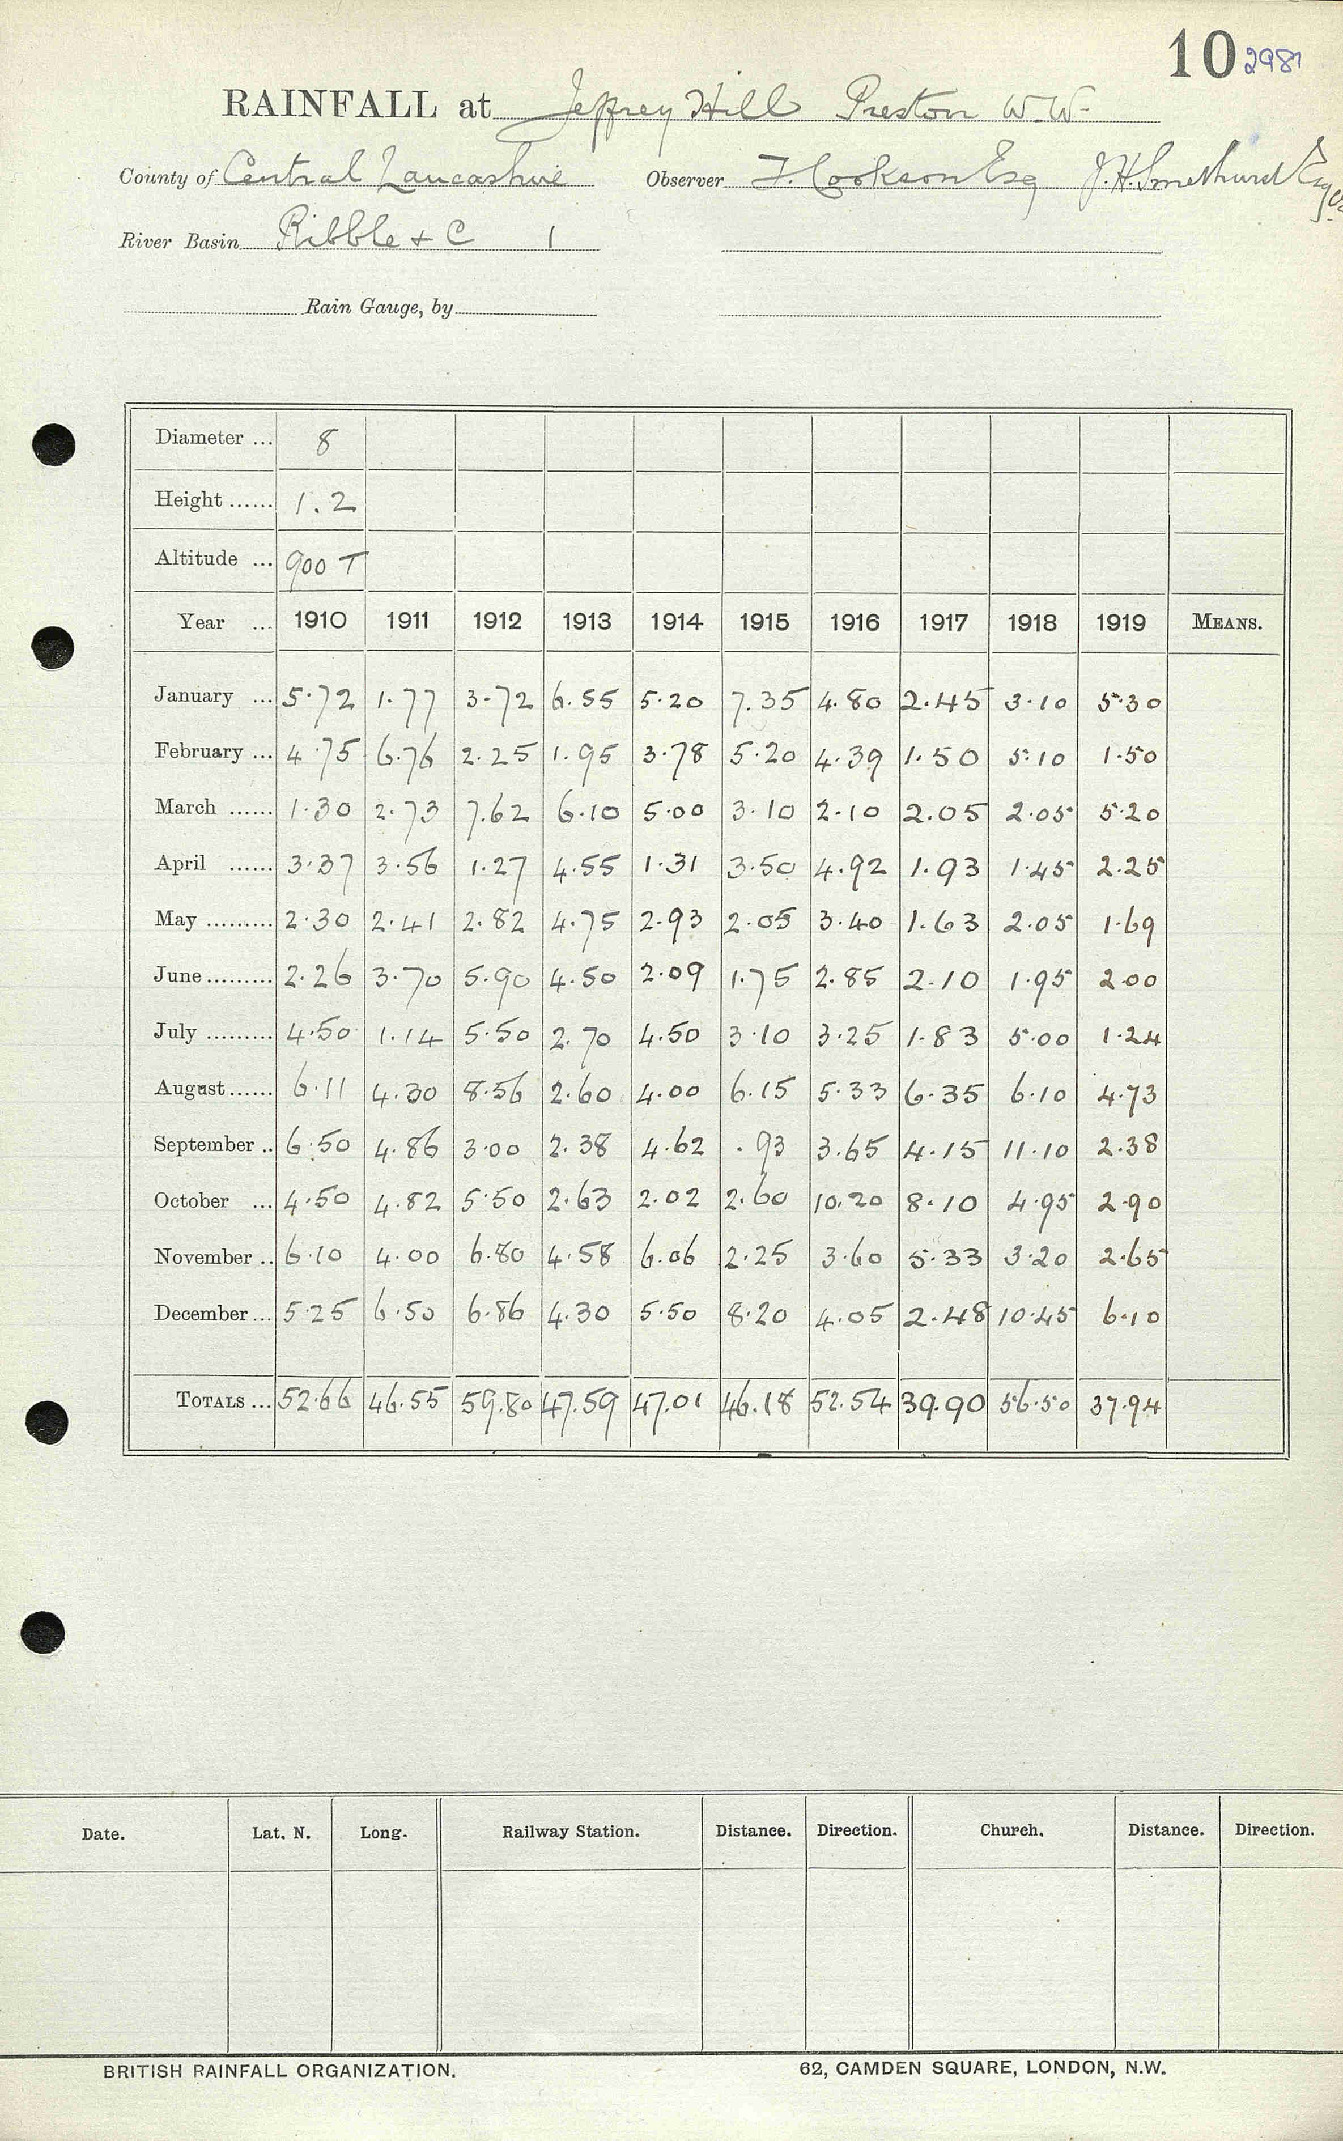 10 2981
RAINFALL at Jeffrey Hill Preston W.W.
County of Central Lancashire Observer F. Cookson Esq J.H. Smethurst Esq
River Basin Ribble + C 1
Rain Gauge, by
Diameter ... 8
Height ...... 1.2
Altitude ... 900 T
Year ... 1910 1911 1912 1913 1914 1915 1916 1917 1918 1919 MEANS.
January ... 5.72 1.77 3.72 6.55 5.20 7.35 4.80 2.45 3.10 5.30
February ... 4.75 6.76 2.25 1.95 3.78 5.20 4.39 1.50 5.10 1.50
March ...... 1.30 2.73 7.62 6.10 5.00 3.10 2.10 2.05 2.05 5.20
April ...... 3.37 3.56 1.27 4.55 1.31 3.50 4.92 1.93 1.45 2.25
May ......... 2.30 2.41 2.82 4.75 2.93 2.05 3.40 1.63 2.05 1.69
June ......... 2.26 3.70 5.90 4.50 2.09 1.75 2.85 2.10 1.95 2.00
July ......... 4.50 1.14 5.50 2.70 4.50 3.10 3.25 1.83 5.00 1.24
August ...... 6.11 4.30 8.56 2.60 4.00 6.15 5.33 6.35 6.10 4.73
September .. 6.50 4.86 3.00 2.38 4.62 .93 3.65 4.15 11.10 2.38
October ... 4.50 4.82 5.50 2.63 2.02 2.60 10.20 8.10 4.95 2.90
November .. 6.10 4.00 6.80 4.58 6.06 2.25 3.60 5.33 3.20 2.65
December ... 5.25 6.50 6.86 4.30 5.50 8.20 4.05 2.48 10.45 6.10
TOTALS ... 52.66 46.55 59.80 47.59 47.01 46.18 52.54 39.90 56.50 37.94
Date. Lat. N. Long. Railway Station. Distance. Direction. Church. Distance. Direction.
BRITISH RAINFALL ORGANIZATION. 62, CAMDEN SQUARE, LONDON, N.W.